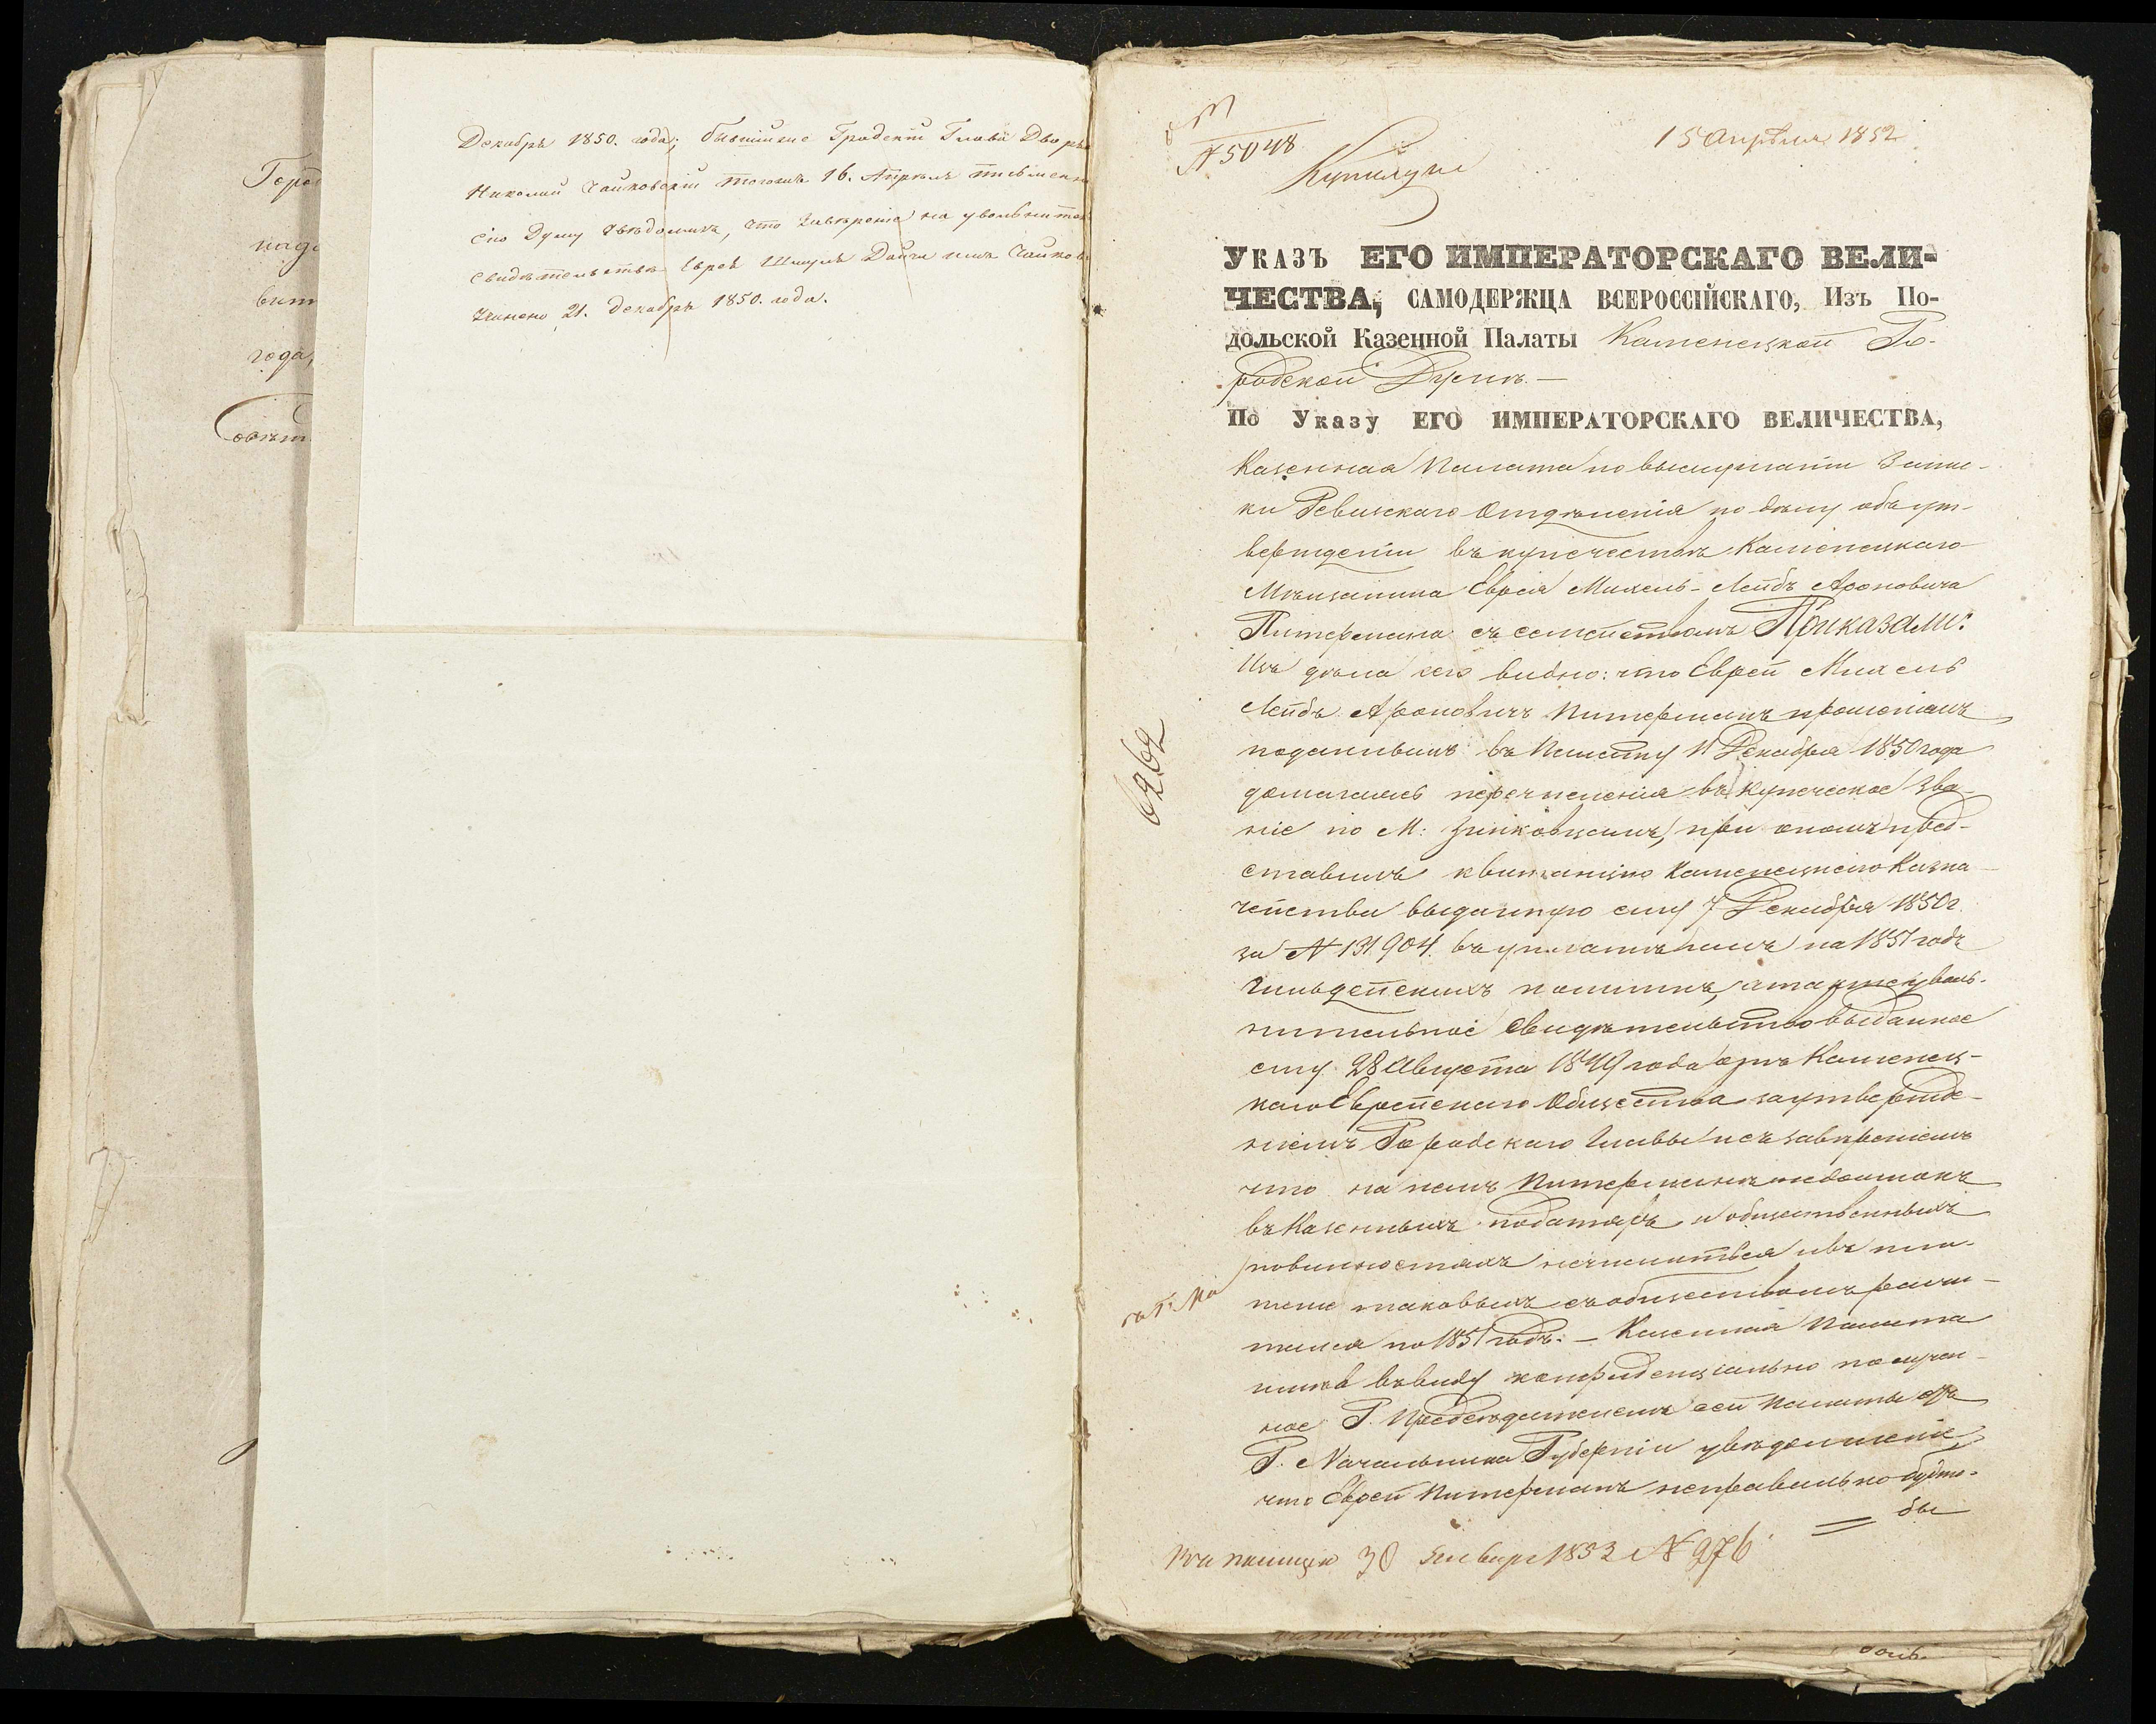 Декабря 1850. года; бывшiй Градскiй Глава Дворя
Николай Чайковскiй 16. Апреля письмен
сiю Думу уведомилъ, что завѣренiе на увольнител
свидѣтельства Еврея Шмуля Чайков
учинено 21. Декабря 1850. года.
Город
года,
№ 5048
15 Апрѣля 1852
УКАЗЪ ЕГО ИМПЕРАТОРСКАГО ВЕЛИ-
ЧЕСТВА, САМОДЕРЖЦА ВСЕРОССІЙСКАГО, Изъ По-
дольской Казенной Палаты Каменецкой Го-
родской Думѣ.—
По Указу ЕГО ИМПЕРАТОРСКАГО ВЕЛИЧЕСТВА,
Казенная Палата по выслушанiи Запис-
ки Ревизскаго Отдѣленiя по дѣлу объ ут-
вержденiи въ купечествѣ Каменецкаго
Мѣщанина Еврея Михель-Лейбъ Ароновича
Питермана съ семействомъ Приказали:
Изъ дѣла сего видно: что Еврей Михель
Лейбъ Ароновичъ Питерманъ прошенiемъ
поданнымъ въ Палату 11 Декабря 1850 года
домагаясь перечисленiя въ купеческое зва-
нiе по М: Зинковцамъ, при ономъ пред-
ставилъ квитанцiю Каменецкаго Казна-
чейства выданную ему 7 Декабря 1850 г.
за № 131904. въ уплатѣ имъ на 1851 годъ
Гильдейскихъ пошлинъ, а также уволь-
нительное свидѣтельство выданное
ему 28 Августа 1849 года отъ Каменец-
каго Еврейскаго Общества за утвержде-
нiемъ Городскаго Главы и съ завѣренiемъ
что на немъ Питерманѣ недоимокъ
въ Казенныхъ податяхъ и общественныхъ
повинностяхъ нечислится и въ пла-
теже таковыхъ съ обществомъ расчи-
тался по 1851 годъ.— Казенная Палата
имѣя въ виду конфиденцiально получен-
ное Г. Председателемъ сей Палаты отъ
Г. Начальника Губернiи увѣдомленiе,
что Еврей Питерманъ неправильно будто-
бы
6262
30 Января 1853 № 276